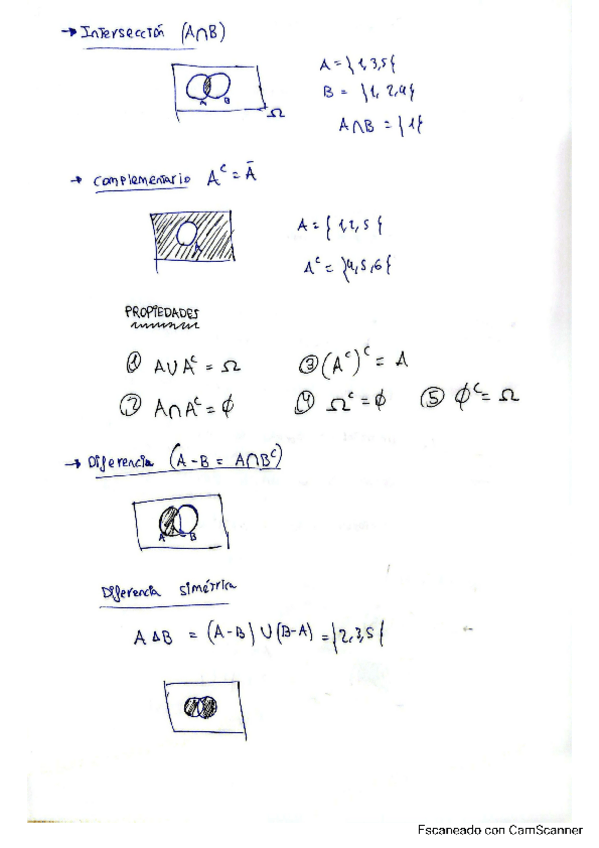 → Intersección (A∩B)
A = }1,3,5{
B = }1, 2,4{
A B
Ω
A∩B = }1{
→ Complementario Aᶜ = Ā
A
A = { 1,2,5 {
Aᶜ = }4,5,6{
PROPIEDADES
① A∪Aᶜ = Ω ③ (Aᶜ)ᶜ = A
② A∩Aᶜ = ∅ ④ Ωᶜ = ∅ ⑤ ∅ᶜ = Ω
→ Diferencia (A-B = A∩Bᶜ)
A B
Diferencia simétrica
A Δ B = (A-B) ∪ (B-A) = }2,3,5{
Escaneado con CamScanner